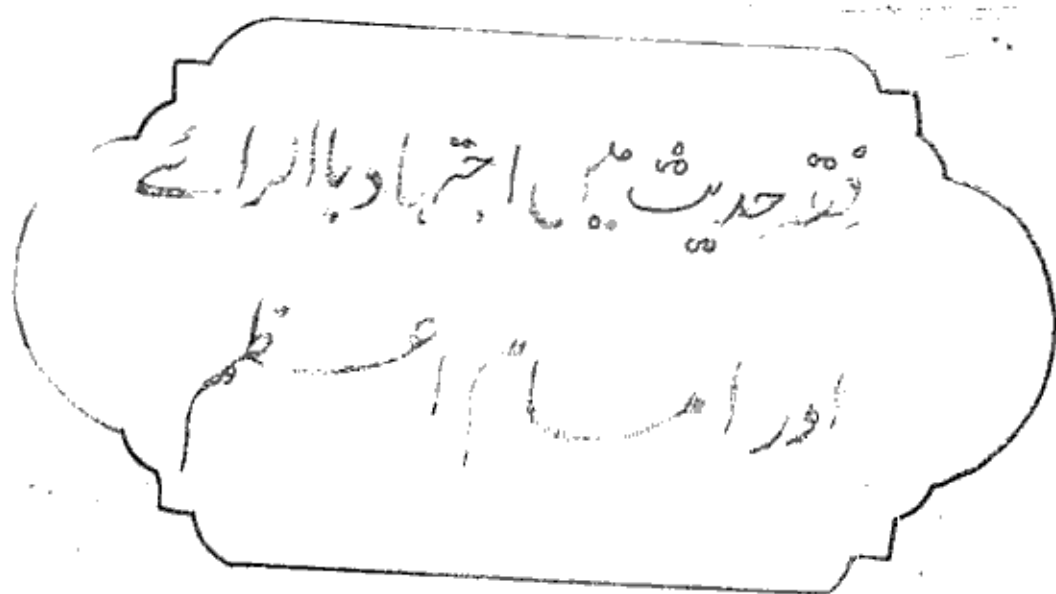 حدیث میں اجتہاد باالرائے
اور امام اعظم